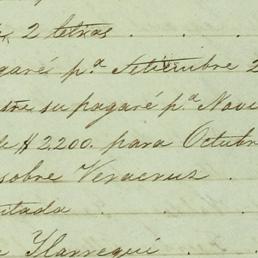 2 letras
pagaré p.ª Setiembre 2
su pagaré p.ª Novi
de $2,200. para Octubr
sobre Veracruz
ntada
Ylarregui